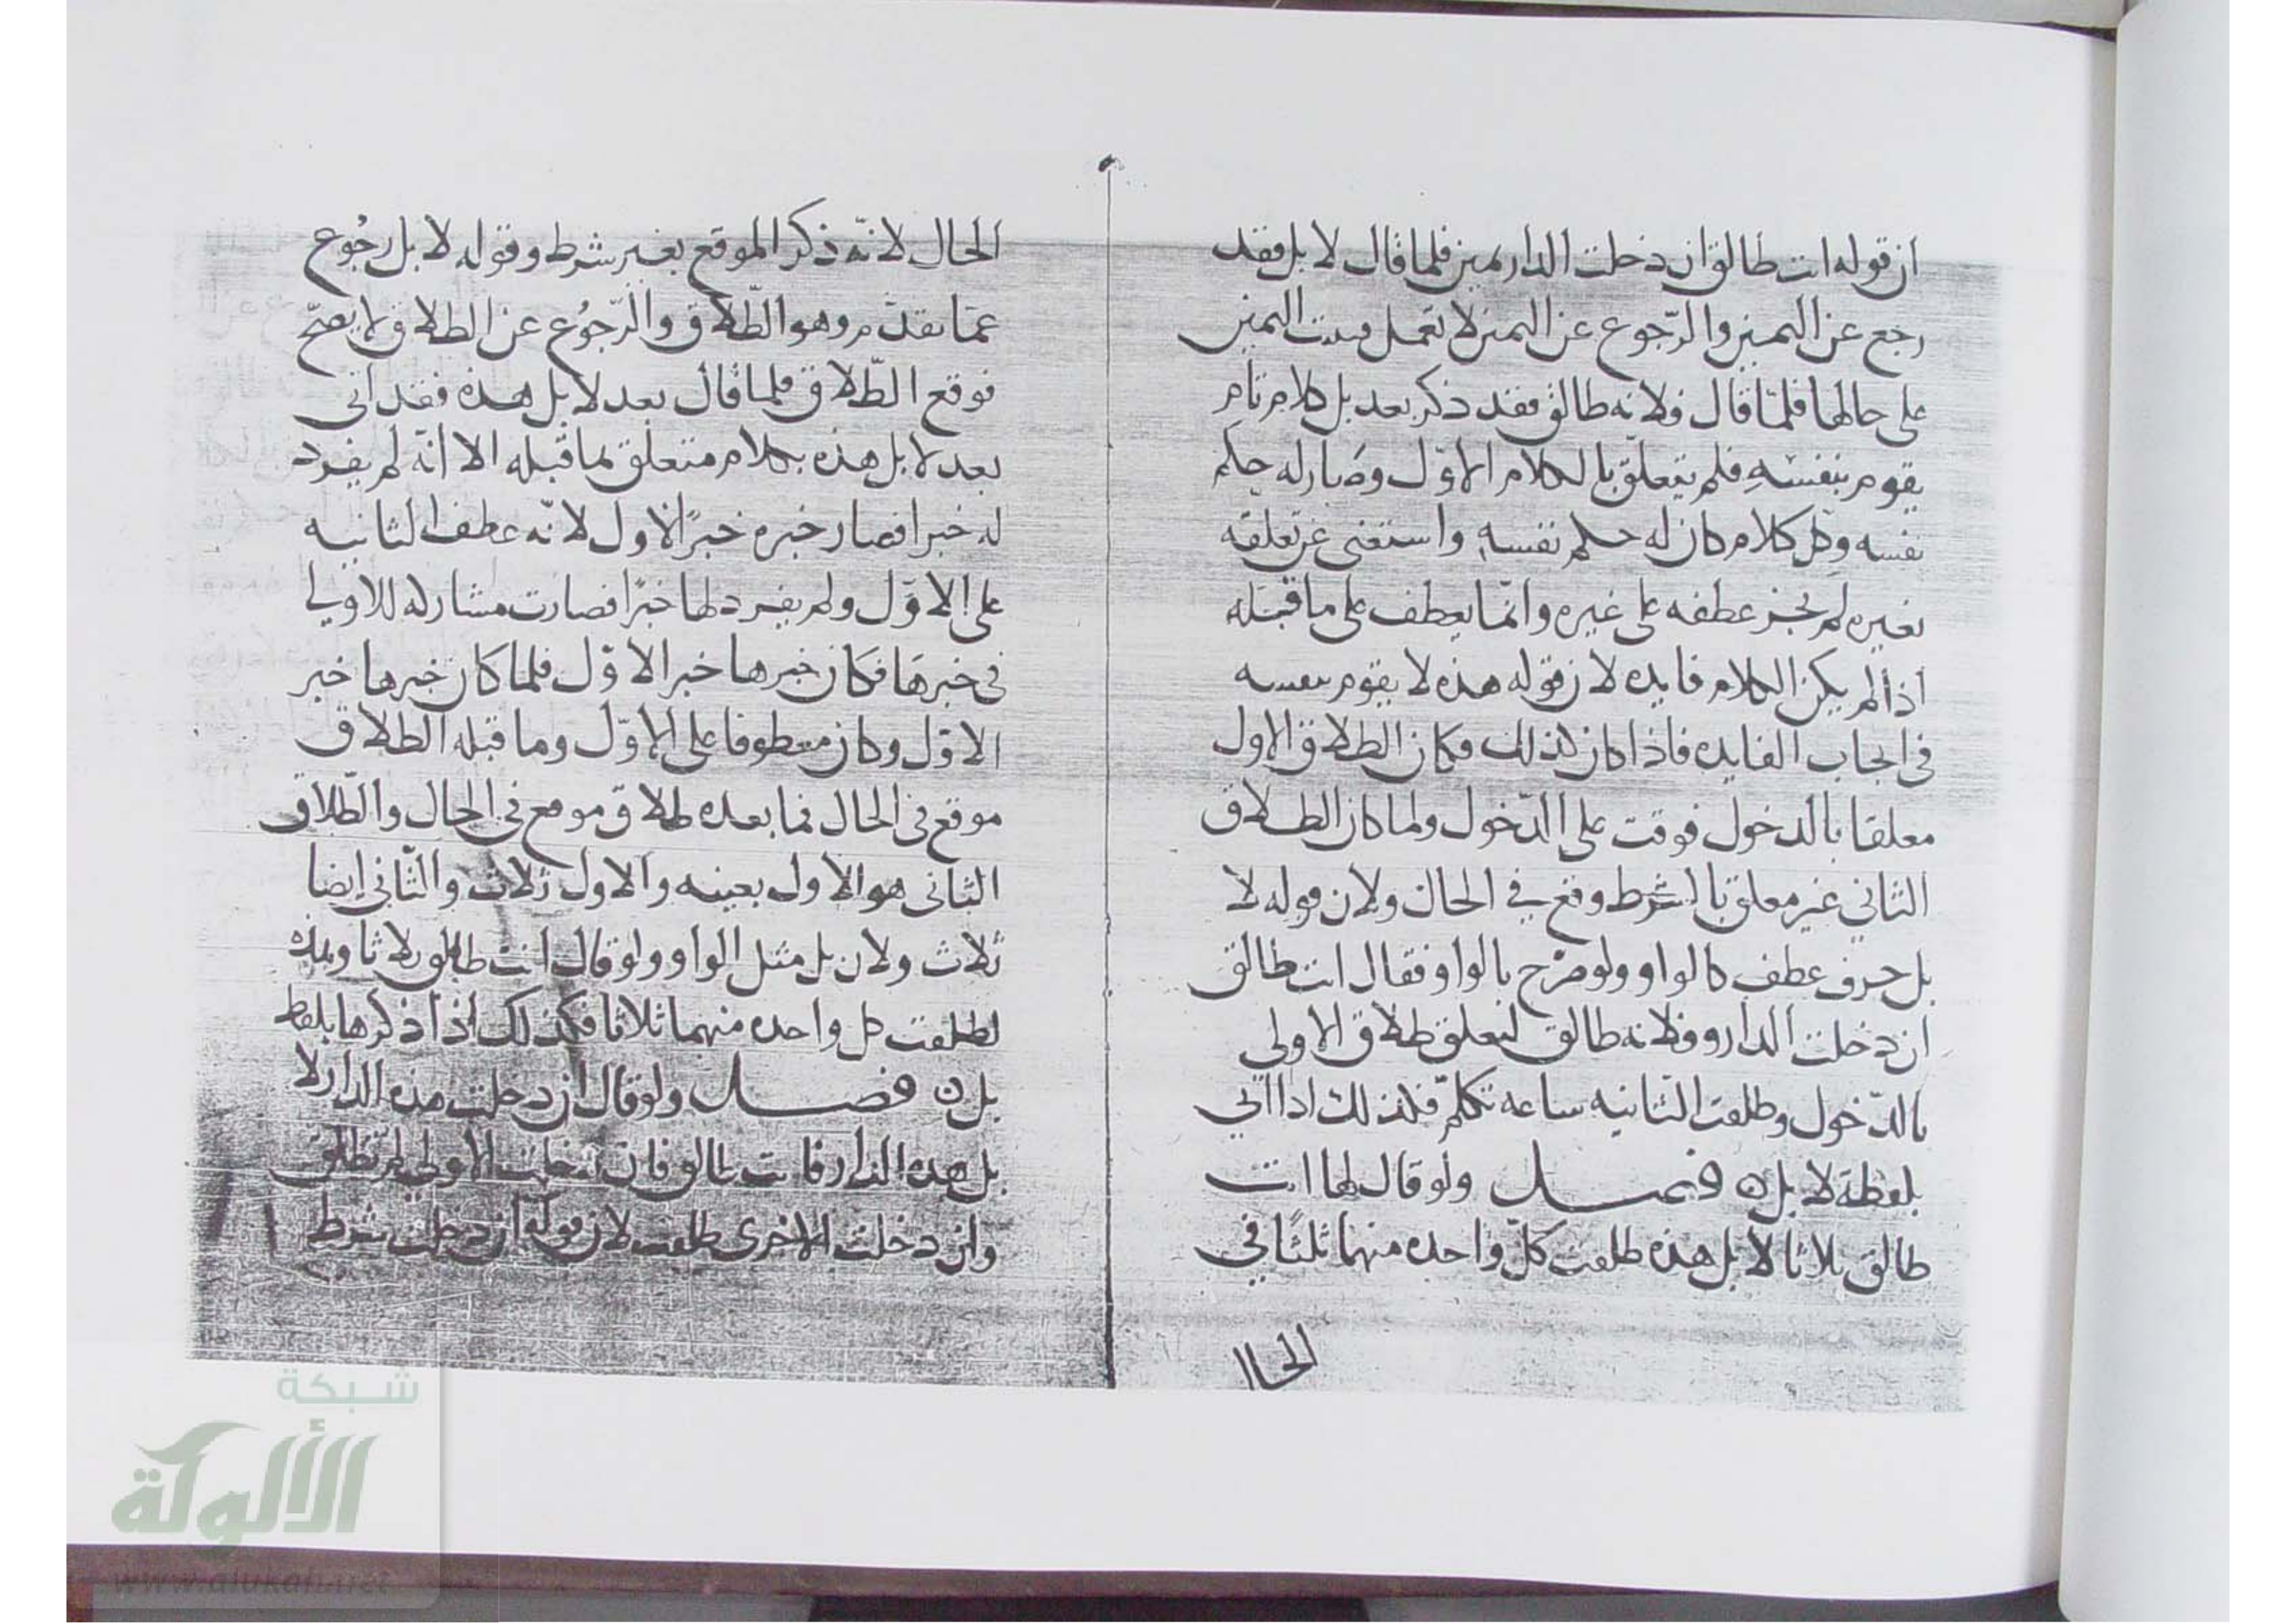 ان قوله انت طالق ان دخلت الدار يمين فلما قال لا بل فقد
رجع عن اليمين والرّجوع عن اليمين لا تعمل فبقيت اليمين
على حالها فلمّا قال فلانه طالق فقد ذكر بعد بل كلام تام
يقوم بنفسه فلم يتعلّق بالكلام الاوّل وصار له حكم
نفسه وكل كلام كان له حكم نفسه واستغنى عن تعلقه
بغيره لم يجز عطفه على غيره وانّما يعطف على ما قبله
اذا لم يكن الكلام فايده لان قوله هذه لا يقوم بنفسه
في ايجاب الفايده فاذا كان كذلك فكان الطلاق الاول
معلقا بالدخول فوقت على الدّخول ولما كان الطلاق
الثاني غير معلق بالشرط وقع في الحال ولان قوله لا
بل حرف عطف كالواو ولو صرّح بالواو فقال انت طالق
ان دخلت الدار وفلانه طالق لتعلق طلاق الاولى
بالدّخول وطلقت الثانيه ساعه تكلّم فكذلك اذا اتى
بلفظة لا بل فصل ولو قال لها انت
طالق ثلاثا لا بل هذه طلقت كلّ واحده منهما ثلثًا في
الحال
الحال لانّه ذكر الموقع بغير شرط وقوله لا بل رجُوع
عمّا تقدّم وهو الطّلاق والرّجوُع عن الطلاق لا يصحّ
فوقع الطّلاق فلما قال بعد لا بل هذه فقد اتى
بعد لا بل هذه بكلام متعلق بما قبله الا انّه لم يفرد
له خبرا فصار خبره خبرًا لاول لانّه عطف الثانيه
على الاوّل ولم يفرد لها خبرًا فصارت مشاركه للاولى
في خبرها فكان خبرها خبر الاوّل فلما كان خبرها خبر
الاوّل وكان معطوفا على الاوّل وما قبله الطلاق
موقع في الحال فما بعده طلاق موقع في الحال والطّلاق
الثاني هو الاول بعينه والاول ثلاث والثّاني ايضا
ثلاث ولان بل مثل الواو ولو قال انت طالق ثلاثا وهذه
لطلقت كل واحده منهما ثلاثا فكذلك اذا ذكرها بلفظ
بل فصل ولو قال ان دخلت هذه الدار لا
بل هذه الدار فانت طالق فان دخلت الاولى لم تطلق
وان دخلت الاخرى طلقت لان قوله ان دخلت شرط
شبكة
الألوكة
www.alukah.net